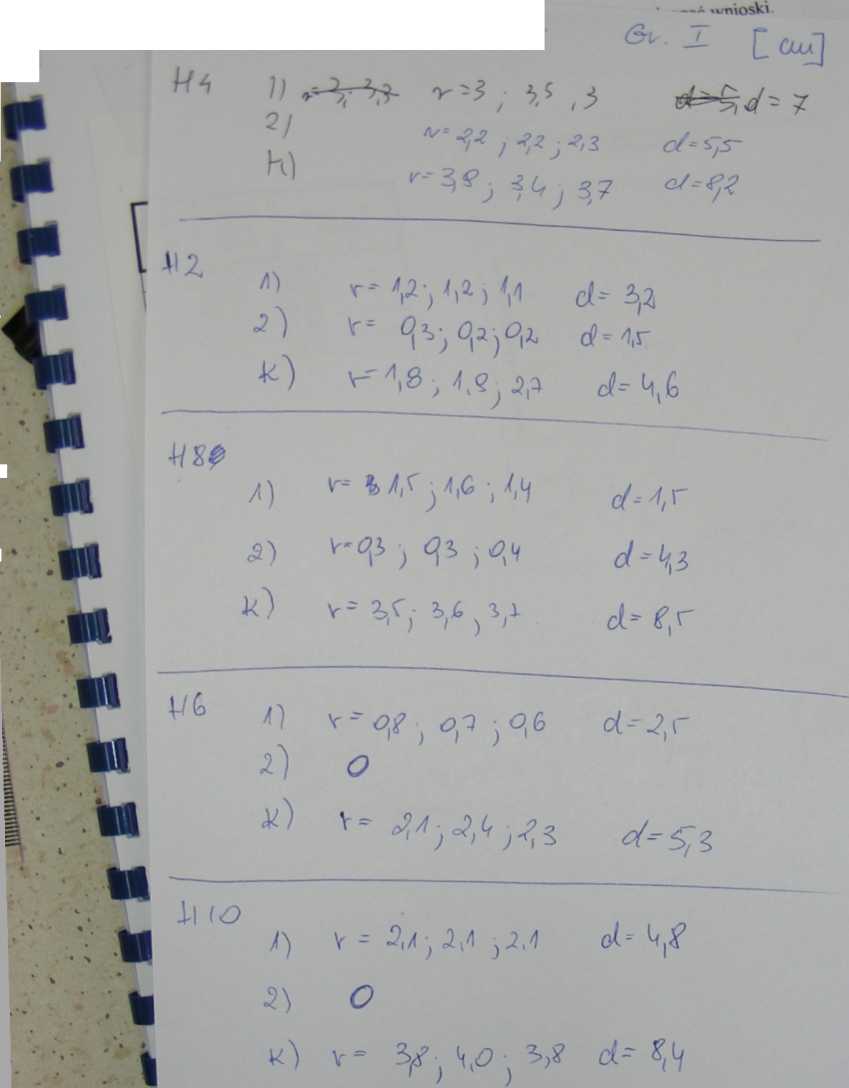 wnioski.
Gr. I [cm]
H4 1) r=3; 3,5, 3 d=7
2) r=2,2; 2,2; 2,3 d=5,5
K) r=3,8; 3,4; 3,7 d=8,2
H2
1) r=1,2; 1,2; 1,1 d=3,2
2) r= 0,3; 0,2; 0,2 d=1,5
K) r=1,8; 1,8; 2,7 d=4,6
H8
1) r= 1,5; 1,6; 1,4 d=1,5
2) r=0,3; 0,3; 0,4 d=4,3
K) r=3,5; 3,6, 3,7 d=8,5
H6 1) r=0,8; 0,7; 0,6 d=2,5
2) 0
K) r= 2,1; 2,4; 2,3 d=5,3
H10
1) r= 2,1; 2,1; 2,1 d=4,8
2) 0
K) r= 3,8; 4,0; 3,8 d=8,4